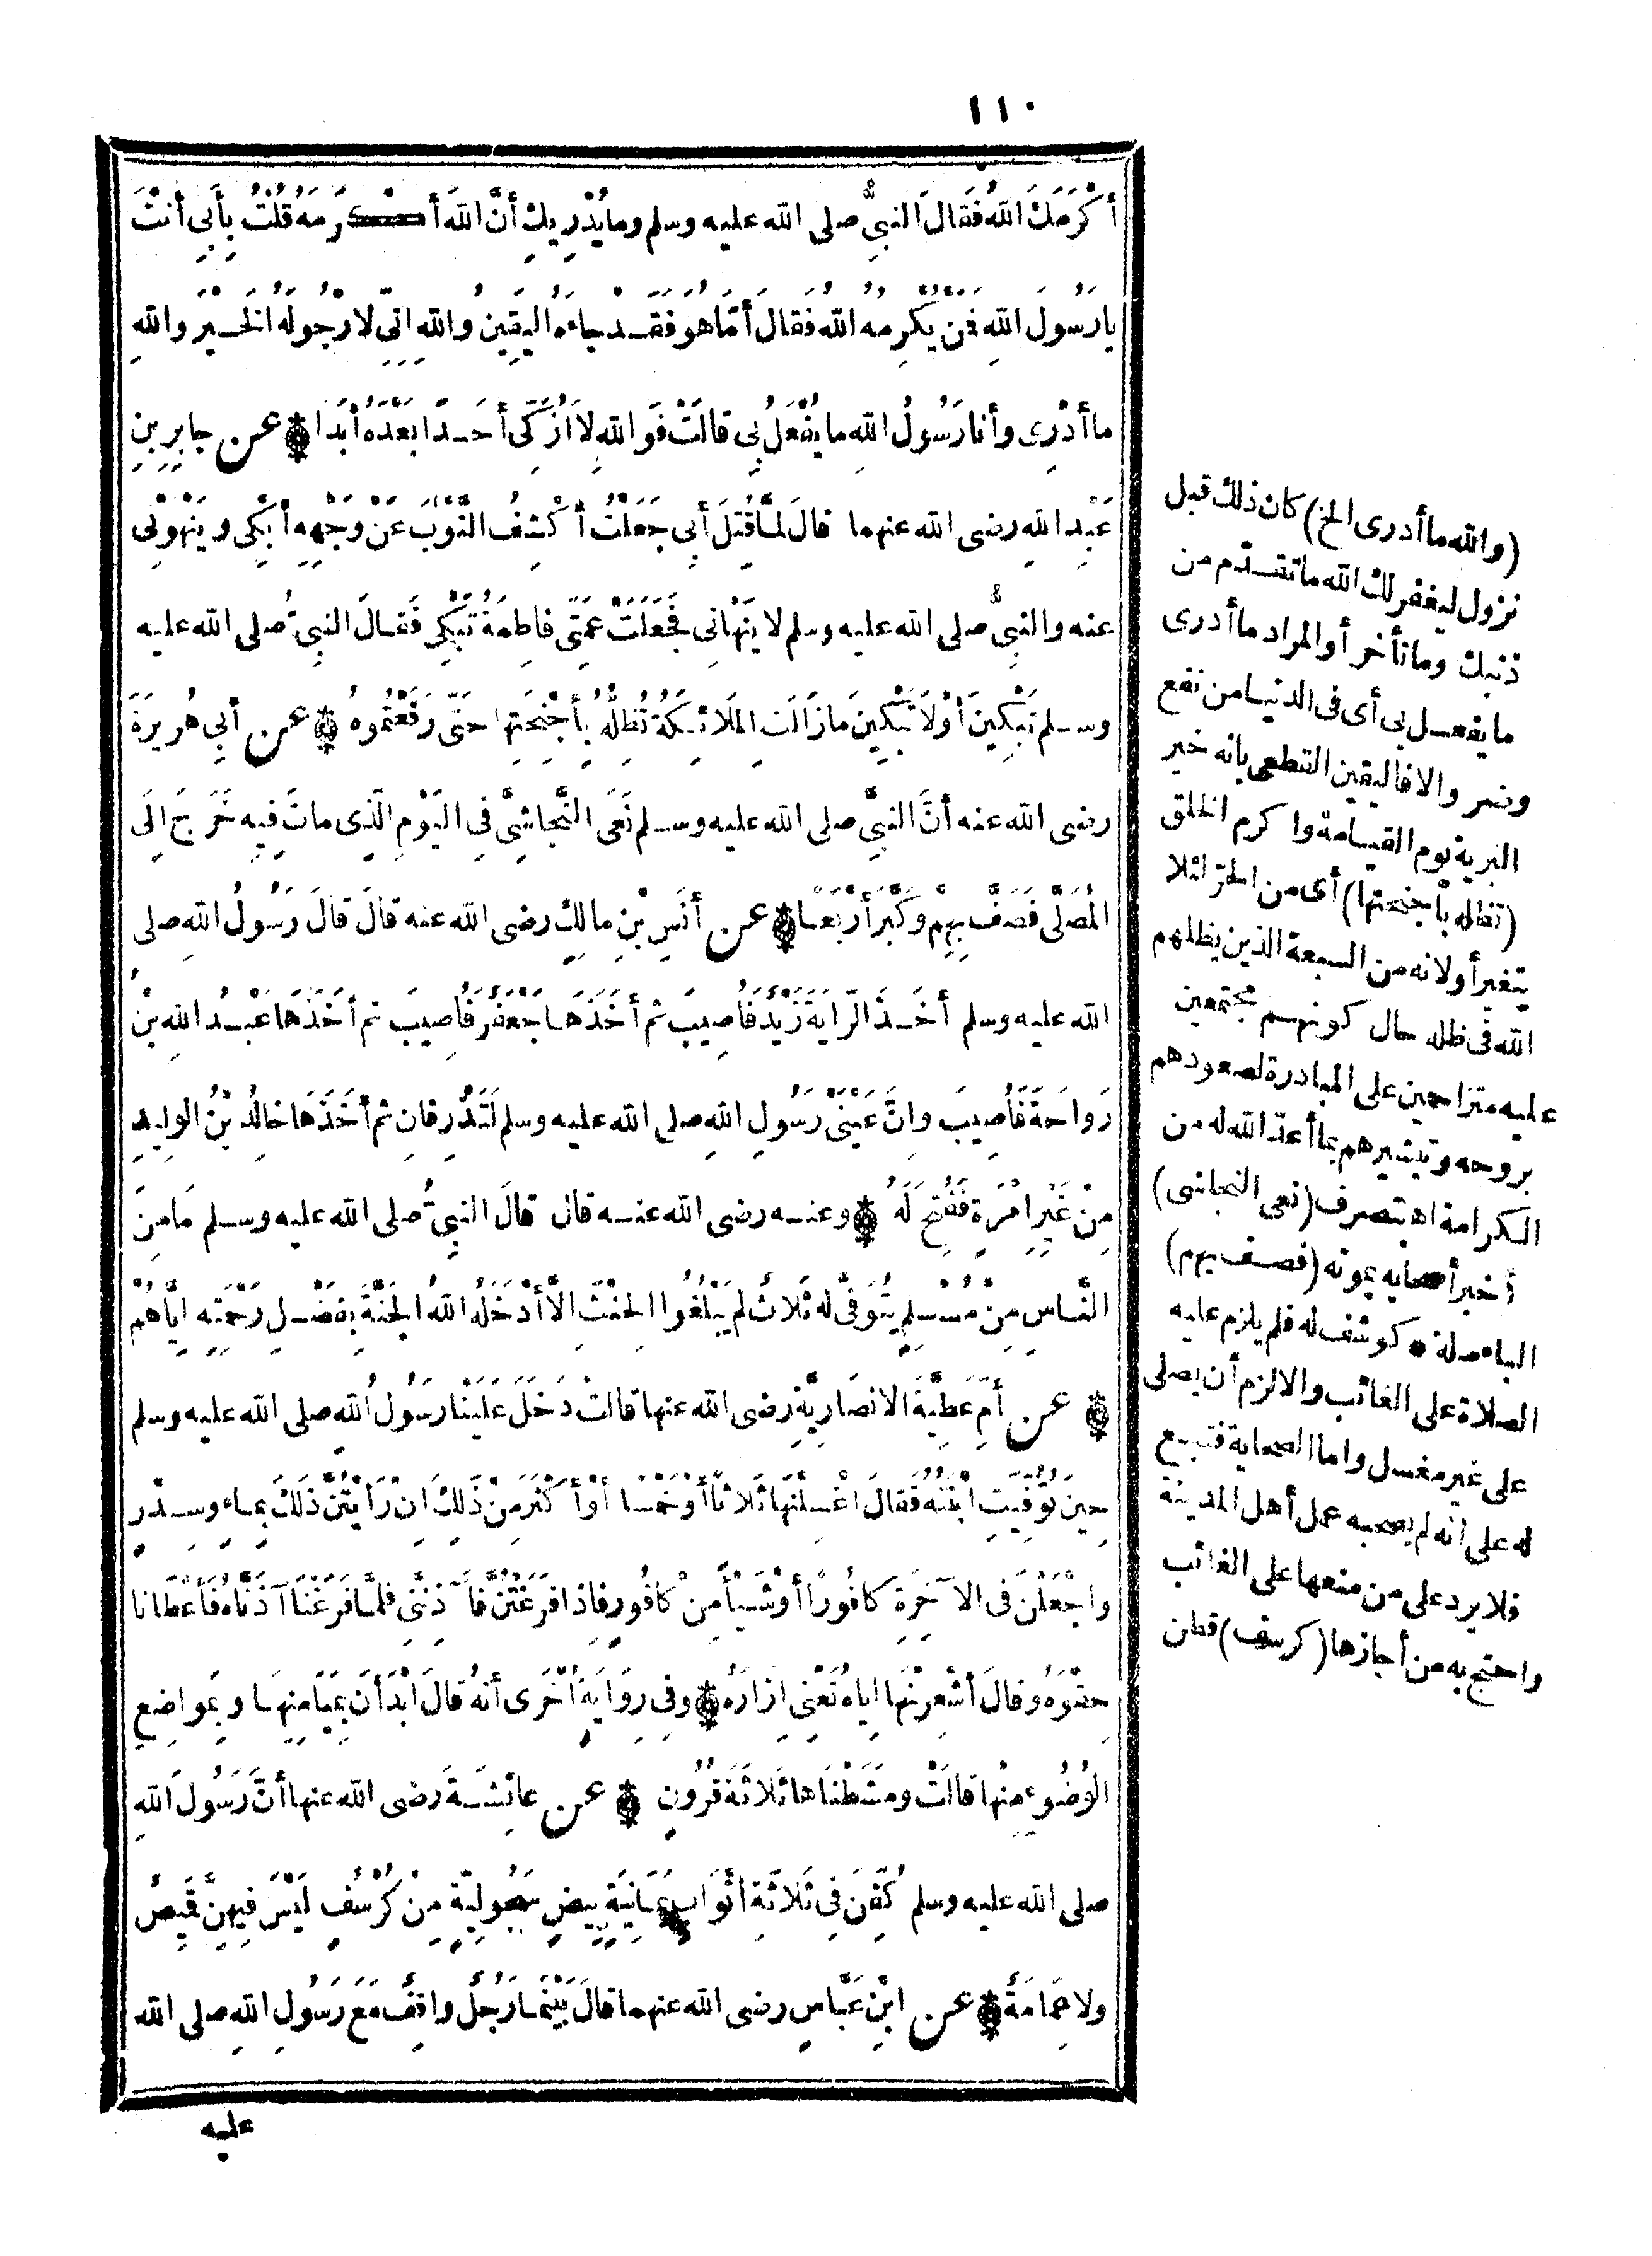 ١١٠
أَكْرَمَكِ اللهُ فَقَالَ النبيُّ صلى الله عليه وسلم وما يُدْرِيكِ أنَّ اللهَ أكْرَمَهُ قُلْتُ بِأَبِي أنتَ
يا رَسُولَ اللهِ فَمَنْ يُكْرِمُهُ اللهُ فَقالَ أمَّا هُوَ فَقَدْ جاءهُ اليَقِينُ واللهِ إنِّي لَارْجُو لَهُ الْخَيْرَ واللهِ
ما أدْرِى وأنا رَسُولُ اللهِ ما يُفْعَلُ بِى قالَتْ فَواللهِ لا أُزَكِّى أحَدًا بَعْدَهُ أبَدًا عن جابِرِ بنِ
عَبْدِ اللهِ رضى الله عنهما قالَ لمَّا قُتِلَ أبِى جَعَلْتُ أكْشِفُ الثَّوْبَ عَنْ وَجْهِهِ أبْكِى ويَنْهَوْنِى
عنه والنبىُّ صلى الله عليه وسلم لا يَنْهانِى فَجَعَلَتْ عَمَّتِى فاطِمَةُ تَبْكِى فَقالَ النبىُّ صلى الله عليه
وسلم تَبْكِينَ أوْ لاَ تَبْكِينَ مازَالَتِ المَلاَئِكَةُ تُظِلُّهُ بِأجْنِحَتِها حتَّى رَفَعْتُموهُ عن أبى هُرَيرَةَ
رضى الله عنه أنَّ النبىَّ صلى الله عليه وسلم نَعَى النَّجاشِىَّ فى اليَوْمِ الَّذِى ماتَ فِيهِ خَرَجَ إلَى
المُصَلَّى فَصَفَّ بِهِمْ وكَبَّرَ أرْبَعًا عن أنَسِ بْنِ مالِكٍ رضى الله عنه قالَ قالَ رَسُولُ اللهِ صلى
الله عليه وسلم أخَذَ الرَّايَةَ زَيْدٌ فَأُصِيبَ ثم أخَذَهَا جَعْفَرٌ فَأُصِيبَ ثم أخَذَهَا عَبْدُ اللهِ بنُ
رَواحَةَ فَأُصِيبَ وإنَّ عَيْنَىْ رَسُولِ اللهِ صلى الله عليه وسلم لَتَذْرِفانِ ثم أخَذَهَا خالِدُ بْنُ الوليدِ
مِنْ غَيْرِ إمْرَةٍ فَفُتِحَ لَهُ وعنه رضى الله عنه قال قالَ النبىُّ صلى الله عليه وسلم مَا مِنَ
النَّاسِ مِنْ مُسْلِمٍ يُتَوَفَّى لَه ثَلاثٌ لَم يَبْلُغُوا الحِنْثَ إلاَّ أدْخَلَهُ اللهُ الجَنَّةَ بِفَضْلِ رَحْمَتِهِ إيَّاهُمْ
عن أمِّ عَطِيَّةَ الانصَارِيَّةِ رضى الله عنها قالتْ دَخَلَ عَلَيْنا رَسُولُ اللهِ صلى الله عليه وسلم
حِينَ تُوُفِّيَتِ ابْنَتُهُ فَقالَ اغْسِلْنَها ثَلاثًا أوْ خَمْسًا أوْ أكْثَرَ مِنْ ذَلِكَ إن رَأَيْتُنَّ ذَلِكَ بِماءٍ وسِدْرٍ
واجْعَلْنَ فى الآخِرَةِ كافُورًا أوْ شَيْأً مِنْ كافُورٍ فإذا فَرَغْتُنَّ فَآذِنَّنِى فلمَّا فَرَغْنَا آذَنَّاهُ فَأعْطَانا
حِقْوَهُ وقالَ أشْعِرْنَها إياه تَعْنِى إزَارَهُ وفى رِوَايَةٍ أُخْرَى أنهُ قالَ ابْدَأْنَ بِمَيَامِنِهَا وبمَواضِعِ
الوُضُوءِ مِنْها قالَتْ ومَشَطْنَاها ثَلاثَةَ قُرُونٍ عن عائِشَةَ رضى الله عنها أنَّ رَسُولَ اللهِ
صلى الله عليه وسلم كُفِّنَ فى ثَلاثَةِ أثْوَابٍ يَمَانِيَةٍ بِيضٍ سَحُولِيَّةٍ مِنْ كُرْسُفٍ لَيْسَ فِيهِنَّ قَمِيصٌ
ولا عِمَامَةٌ عن ابْنِ عَبَّاسٍ رضى الله عنهما قالَ بَيْنَمَا رَجُلٌ واقِفٌ مَعَ رَسُولِ اللهِ صلى الله
عليه
(والله ما أدرى الخ) كان ذلك قبل
نزول ليغفر لك الله ما تقدّم من
ذنبك وما تأخر أو المراد ما أدرى
ما يفعل بى أى فى الدنيا من نفع
وضر والا فاليقين القطعى بانه خير
البرية يوم القيامة وا كرم الخلق
(تظله بأجنحتها) أى من الحرّ لئلا
يتغير أو لانه من السبعة الذين يظلهم
الله فى ظله حال كونهم مجتمعين
عليه متزاحمين على المبادرة لصعودهم
بروحه وتبشيرهم بما أعدّ الله له من
الكرامة اه بتصرف (نعى النجاشى)
أخبر أصحابه بموته (فصف بهم)
الباء صلة * كوشف له فلم يلزم عليه
الصلاة على الغائب والا لزم أن يصلى
على غير مغسل واما الصحابة فتبع
له على انه لم يصحبه عمل أهل المدينة
فلا يرد على من منعها على الغائب
واحتج به من أجازها (كرسف) قطن